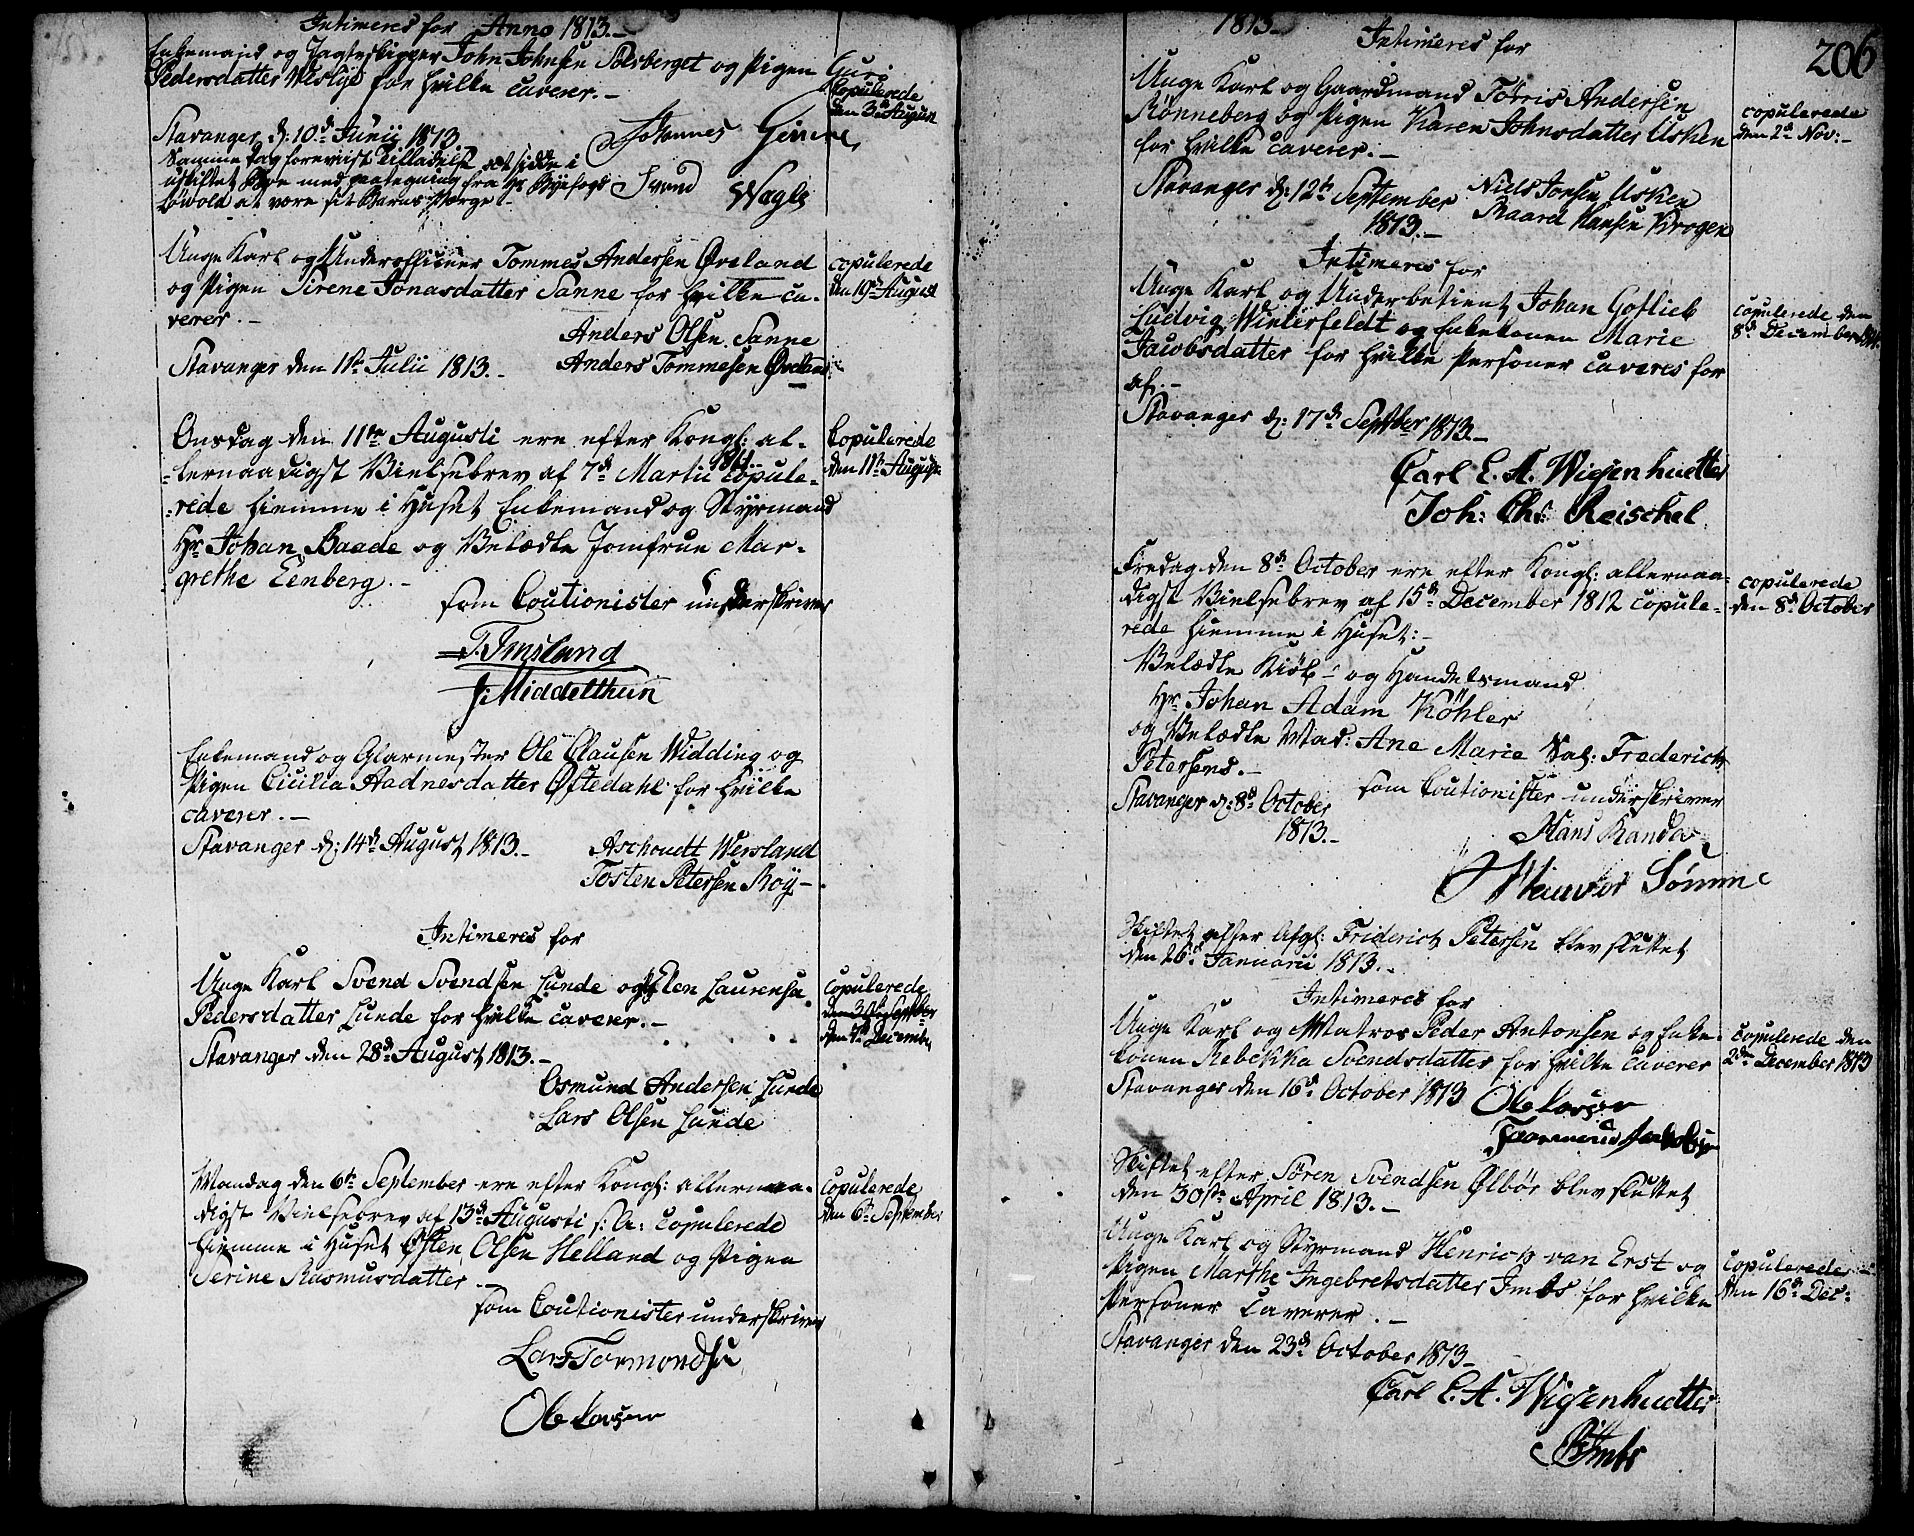 Intimeres for Anno 1813.-
Enkemand og Jagteskipper John Johnsen Solsberget og Pigen Guri
Pedersdatter Meslye for hvilke caverer.-
Copulerede
den 3de August
Stavanger d: 10de Junij 1813
Johannes
Samme Dag foreviist Tilladelse at sidde i
uskiftet Boe med paategning fra Hr Byefogd
Løwold at være sit Barns Værge.-
Svend Wagle
Unge Karl og Underofficeer Tommes Andersen Øveland
og Pigen Sirene Jonasdatter Sanne for hvilke ca-
verer.-
copulerede
den 19de August
Anders Olsen Sanne
Stavanger den 11te Julii 1813.-
Anders Tommesen Øveland
Onsdag den 11te Augusti ere efter Kongl: al-
lernaadigst Vielsebrev af 7de Martii 1811 copule-
rede hiemme i Huset Enkemand og Styrmand
Hr Johan Baade og Velædle Jomfrue Mar-
grethe Eenberg.-
Copulerede
den 11te August
som Coutionister underskriver
T. Imsland
J: Middelthun
Enkemand og Glarmester Ole Clausen Widding og
Pigen Cicilia Aadnesdatter Øftedahl for hvilke
caverer.-
Stavanger d: 14de August 1813.-
Aschoudt Wersland
Tosten Petersen Roy-
Intimeres for
Unge Karl Svend Svendsen Lunde og Elen Laurensa
Pedersdatter Lunde for hvilke caverer.-
Stavanger den 28de August 1813.-
Copulerede
den 30te September
den 4de December
Osmund Andersen Lunde
Lars Olsen Lunde
Mandag den 6te September ere efter Kongl: allernaa-
digst Vielsebrev af 13de Augusti s: A: copulerede
hiemme i Huset Østen Olsen Helland og Pigen
Serine Rasmusdatter.-
Copulerede
den 6te September
som Coutionister underskriver
Lars Tormondsen
Ole Larsen
1813.-
Intimeres for
206
Unge Karl og Gaardmand Törris Andersen
Rönneberg og Pigen Karen Johnsdatter Usken
for hvilke caverer.-
copulerede
den 2de Nov:-
Stavanger d: 12te September
1813.-
Niels Jonsen Usken
Baard Hansen Krogen
Intimeres for
Unge Karl og Underbetient Johan Gotlieb
Ludvig Winterfeldt og Enkekonen Marie
Jacobsdatter for hvilke Personer caveres for
af.-
copulerede den
8de December
Stavanger d: 17de Septber 1813.-
Carl E. A. Wigenhuetter
Joh: Chr: Reischel
Fredag den 8de October ere efter Kongl: allernaa-
digst Vielsebrev af 15de December 1812 copule-
rede hiemme i Huset:-
Velædle Kiöb- og Handelsmand
Hr Johan Adam Köhler
og Velædle Mad: Ane Marie Sal: Frederich
Petersens.-
copulerede
den 8de October
Stavanger d: 8de October
1813.-
som Coutionister underskriver
Hans Kanda
Sömme
Skiftet efter Afgl: Friderich Petersen blev sluttet
den 26de Januarii 1813.-
Intimeres for
Unge Karl og Matros Peder Antonsen og Enke-
konen Rebekka Svendsdatter for hvilke caverer
Stavanger den 16de October 1813
copulerede den
2den December 1813
Ole Larsen
Skiftet efter Sören Svendsen Ølbör blev sluttet
den 30te April 1813.-
Unge Karl og Styrmand Henrich van Erst og
Pigen Marthe Ingebretsdatter Imbs for hvilke
Personer caverer.-
copulerede
den 16de Dec:
Stavanger den 23de October 1813
Carl E. A. Wigenhuetter
Imbs